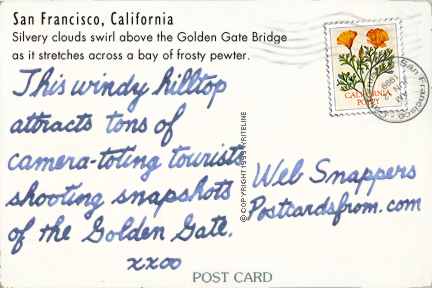 San Francisco, California
Silvery clouds swirl above the Golden Gate Bridge
as it stretches across a bay of frosty pewter.
This windy hilltop
attracts tons of
camera-toting tourists
shooting snapshots
of the Golden Gate.
xxoo
© COPYRIGHT 1999 WRITELINE
CALIFORNIA
POPPY
San Francisco
Web Snappers
Postcardsfrom.com
POST CARD